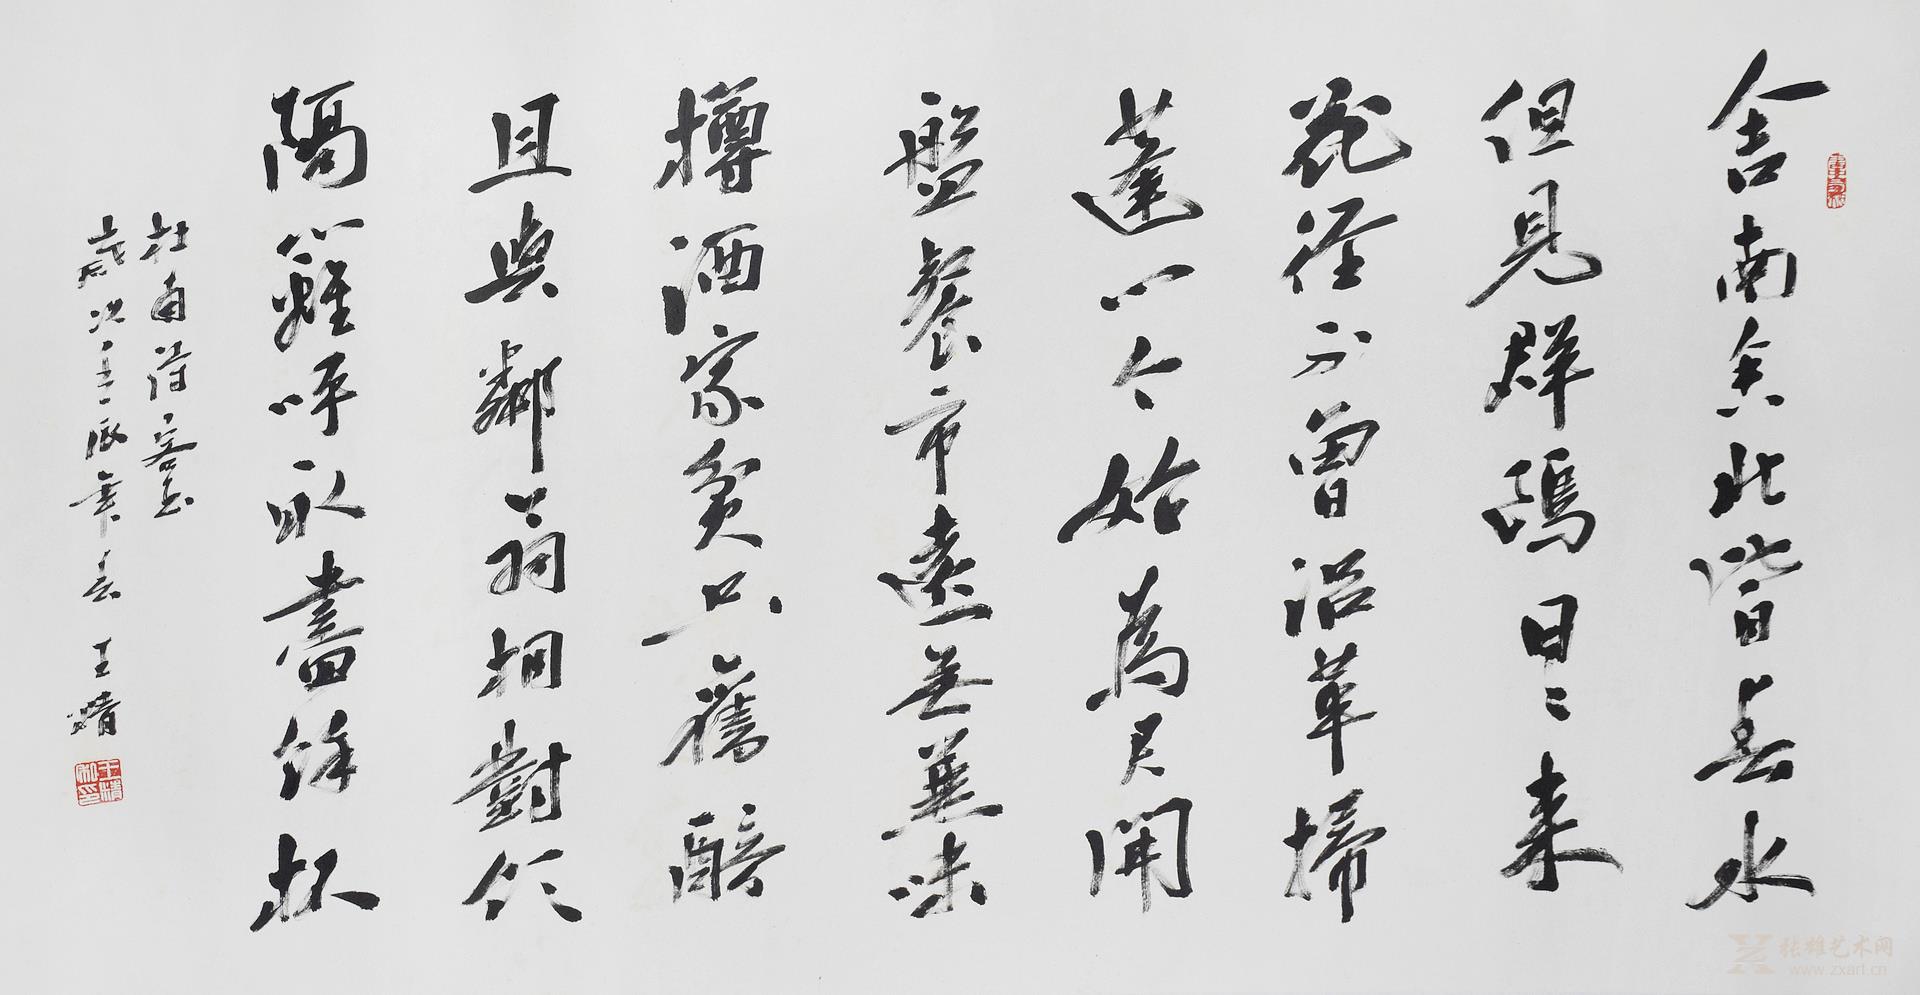 舍南舍北皆春水
但見群鷗日〻来
花徑不曾沿革掃
蓬门今始為君開
盤餐市遠無兼味
樽酒家貧只舊醅
且與鄰翁相對飲
隔籬呼取盡餘杯
杜甫詩客至
歲次壬辰年春 王
张雄艺术网
www.zxart.cn